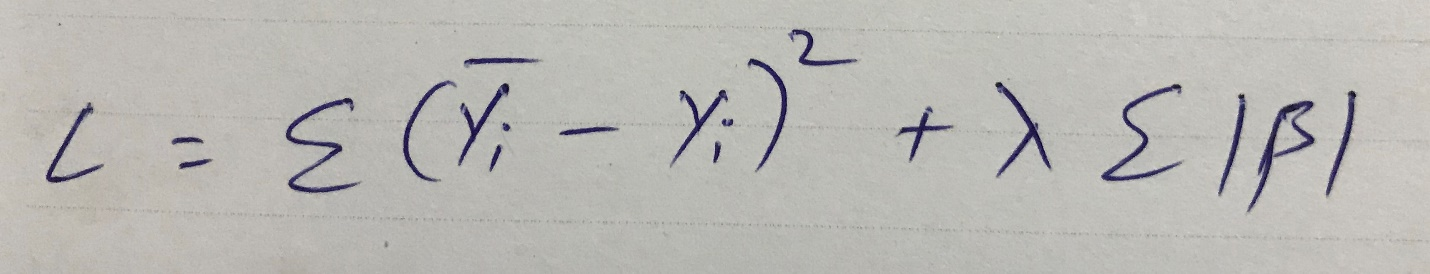 L = Σ (y̅ᵢ - yᵢ)² + λ Σ |β|